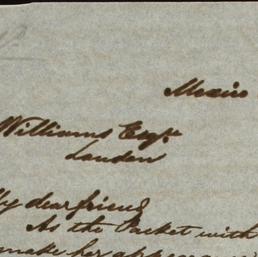 Mexico
Williams Esqr
London
My dear friend
As the Packet with
make her appearance